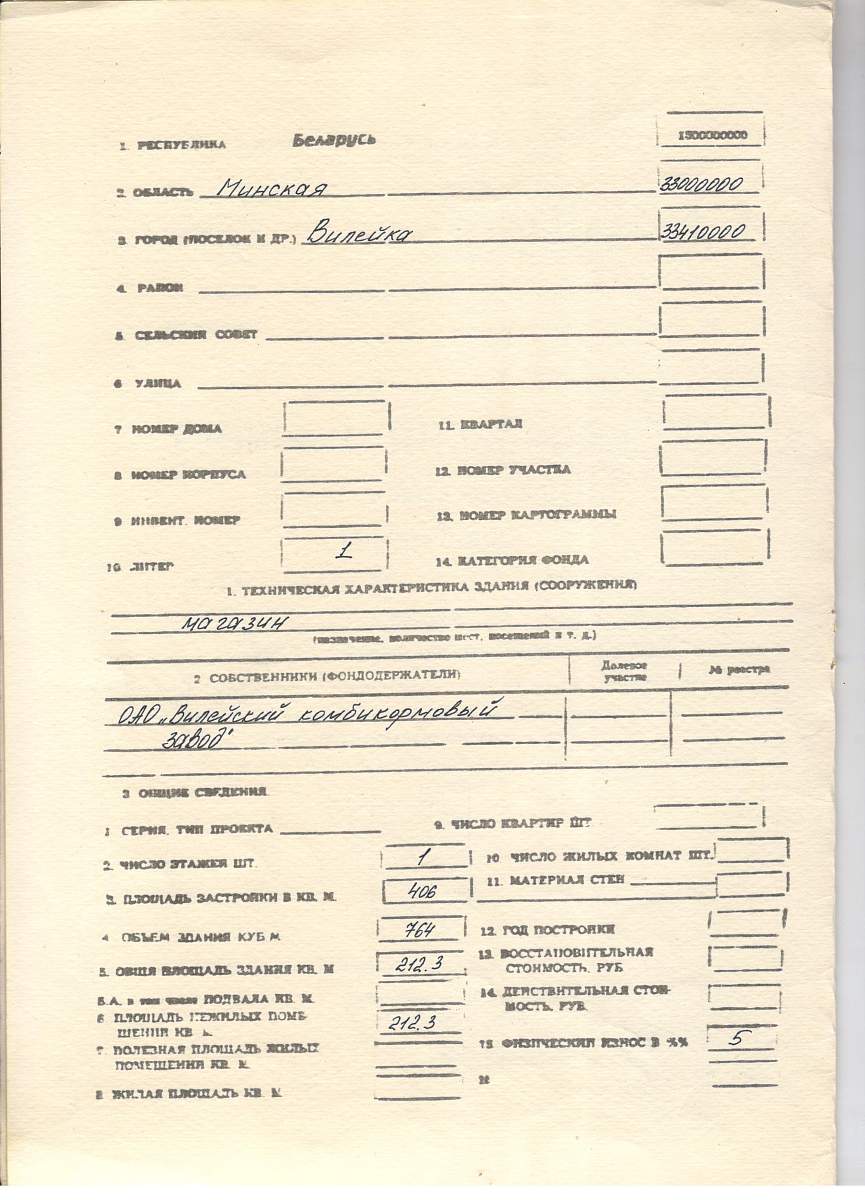 1. РЕСПУБЛИКА Беларусь 1500000000
2. ОБЛАСТЬ Минская 33000000
3. ГОРОД (ПОСЕЛОК И ДР.) Вилейка 33410000
4. РАЙОН
5. СЕЛЬСКИЙ СОВЕТ
6 УЛИЦА
7 НОМЕР ДОМА 11. КВАРТАЛ
8 НОМЕР КОРПУСА 12. НОМЕР УЧАСТКА
9 ИНВЕНТ. НОМЕР 13. НОМЕР КАРТОГРАММЫ
10. ЛИТЕР 1 14. КАТЕГОРИЯ ФОНДА
1. ТЕХНИЧЕСКАЯ ХАРАКТЕРИСТИКА ЗДАНИЯ (СООРУЖЕНИЯ)
магазин
(назначение, количество мест, посещений и т. д.)
2 СОБСТВЕННИКИ (ФОНДОДЕРЖАТЕЛИ) Долевое участие № реестра
ОАО „Вилейский комбикормовый
завод"
3 ОБЩИЕ СВЕДЕНИЯ
1 СЕРИЯ, ТИП ПРОЕКТА 9. ЧИСЛО КВАРТИР ШТ
2. ЧИСЛО ЭТАЖЕЙ ШТ. 1 10. ЧИСЛО ЖИЛЫХ КОМНАТ ШТ.
3. ПЛОЩАДЬ ЗАСТРОЙКИ В КВ. М. 406 11. МАТЕРИАЛ СТЕН
4 ОБЪЕМ ЗДАНИЯ КУБ М 764 12. ГОД ПОСТРОЙКИ
5. ОБЩЯ ПЛОЩАДЬ ЗДАНИЯ КВ. М 212.3 13. ВОССТАНОВИТЕЛЬНАЯ
СТОИМОСТЬ, РУБ
5.А. в том числе ПОДВАЛА КВ. М. 14. ДЕЙСТВИТЕЛЬНАЯ СТОИ-
МОСТЬ, РУБ.
6 ПЛОЩАДЬ НЕЖИЛЫХ ПОМЕ-
ЩЕНИЙ КВ. М. 212.3 15 ФИЗИЧЕСКИЙ ИЗНОС В %% 5
7 ПОЛЕЗНАЯ ПЛОЩАДЬ ЖИЛЫХ
ПОМЕЩЕНИЙ КВ. М
8 ЖИЛАЯ ПЛОЩАДЬ КВ. М